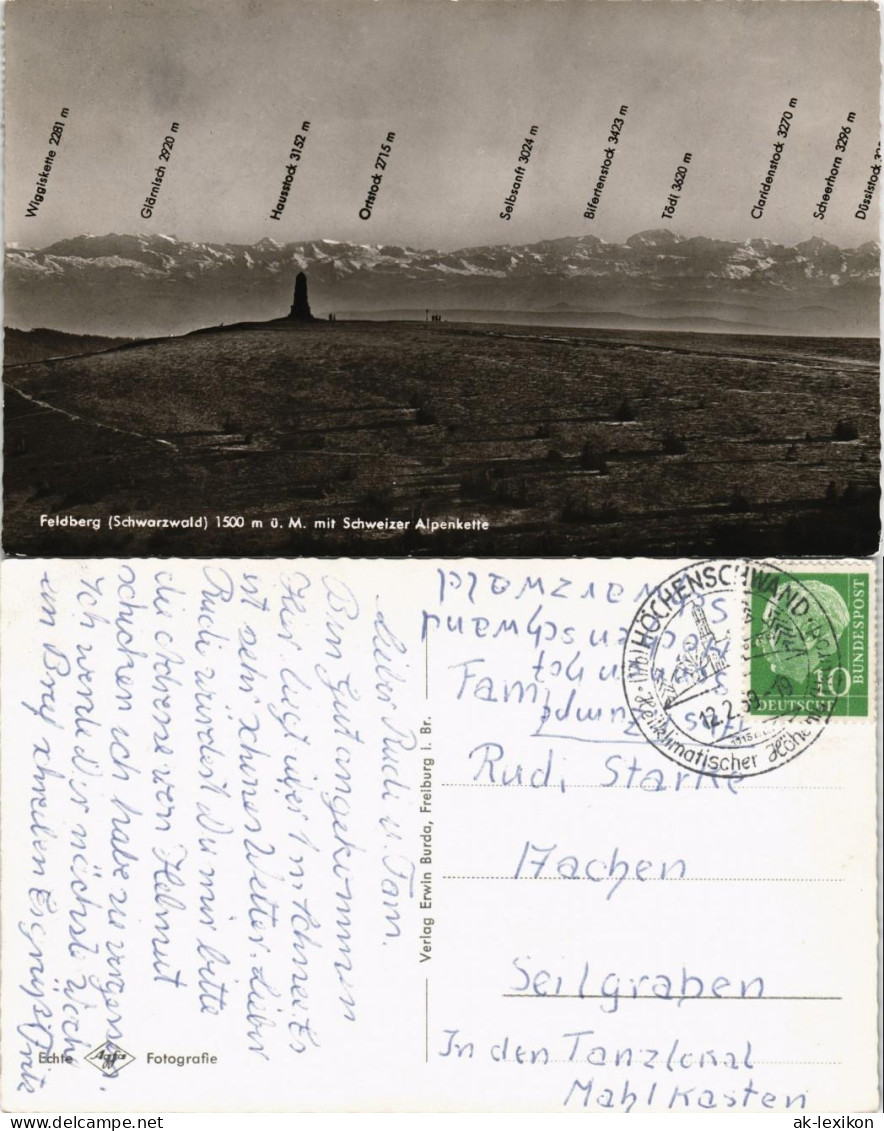 Wiggiskette 2281 m
Glärnisch 2920 m
Hausstock 3152 m
Ortstock 2715 m
Selbsanft 3024 m
Bifertenstock 3423 m
Tödi 3620 m
Claridenstock 3270 m
Scheerhorn 3296 m
Düssistock
Feldberg (Schwarzwald) 1500 m ü. M. mit Schweizer Alpenkette
Lieber Rudi u. Fam.
Bin Gut angekommen
Hier liegt über 1 m Schnee Es
ist sehr schönes Wetter. Lieber
Rudi würdest Du mir bitte
die Adresse von Helmut
schicken ich habe sie vergessen.
Ich werde Dir nächste Woche
ein Brief schreiben Es grüßt Fritz
Echte Agfa Fotografie
Verlag Erwin Burda, Freiburg i. Br.
Schwarzwald
Höchenschwand
HÖCHENSCHWAND
(17b)
Heilklimatischer Höhen
12.2.59-19
1015 m
DEUTSCHE
BUNDESPOST
10
Fam
Rudi Starke
Aachen
Seilgraben
In den Tanzlokal
Mahlkasten
ak-lexikon